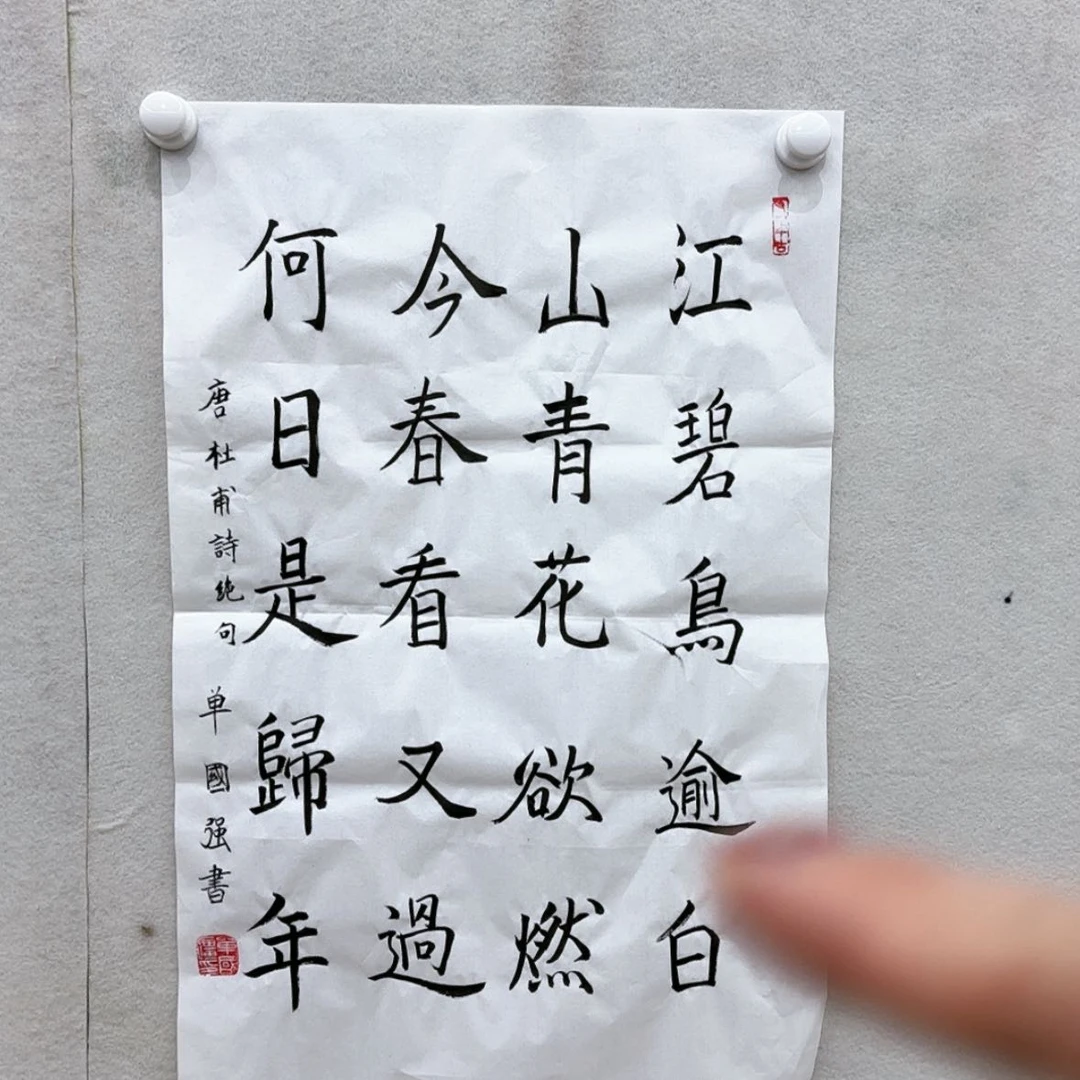 江碧鳥逾白
山青花欲燃
今春看又過
何日是歸年
唐杜甫詩絶句 单國强書